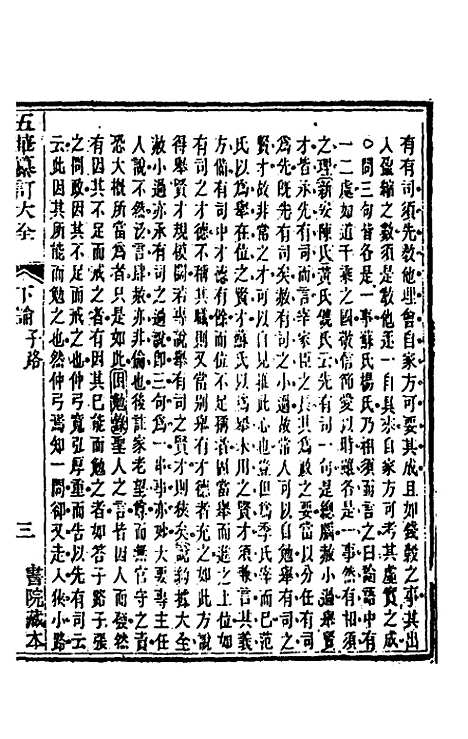 有有司須先教他理會自家方可要其成且如錢穀之事其出
人盈縮之數須是教他逐一自具來自家方可考其虛實之成
○問三句皆各是一事蘇氏楊氏乃相須而言之曰論語中有
一二處如道千乘之國敬信節愛以時雖各是一事然有相須
之理新安陳氏黃氏饒氏云先有司一句是總腦赦小過舉賢
才皆承先有司而言宰家臣之長其為政之要當以分任有司
為先既先有司矣赦有司之小過故常人可以自勉舉有司之
賢才故非常之才可以自見推此心也豈但為季氏宰而已范
氏以為舉在位之賢才蘇氏以為舉未用之賢才須兼言其義
方備有司中才德有餘而位不稱者固當舉而進之上位如
有司之才德僅稱其職則又當別舉有才德者充之如此方說
得舉賢才規模闊若專說舉有司之賢才則狹矣說約據大全
赦小過亦承有司之過說即三句為一串事亦疑大全專主任
人說不然泛言肆赦亦非倫也後註家老望尊而無官守之責
恐大概所當為者只是如此困勉錄聖人之言皆因人而發
有因其所不足而戒之者有因其已能而勉之者如答子路子張
之問政因其所不足而戒之也仲弓寬弘厚重而告以先有司云
云此因其所能而勉之也然仲弓焉知一問卻又走入狹小路
五華纂訂大全
下論 子路
三
書院藏本